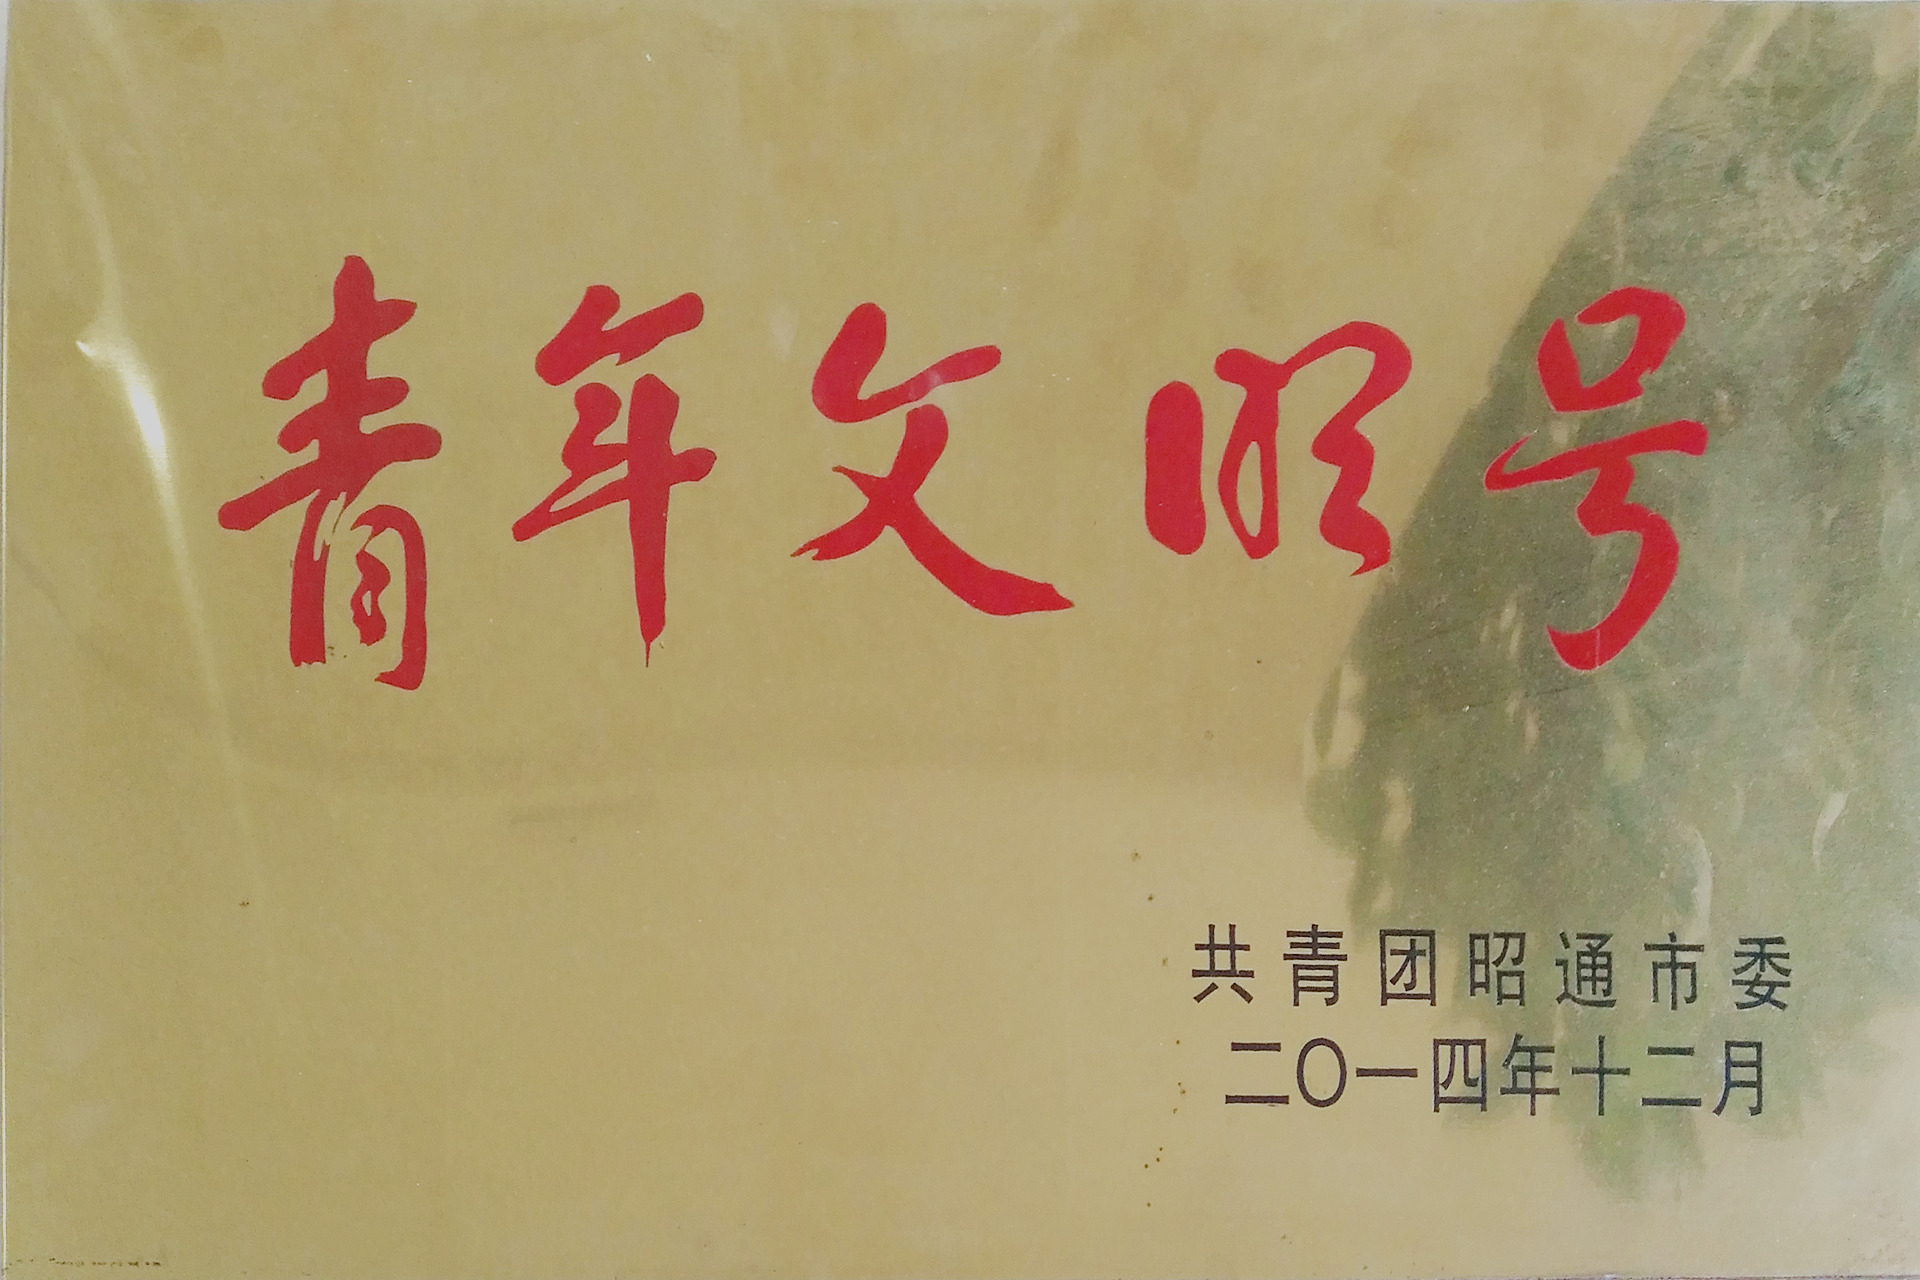 青年文明号
共青团昭通市委
二〇一四年十二月